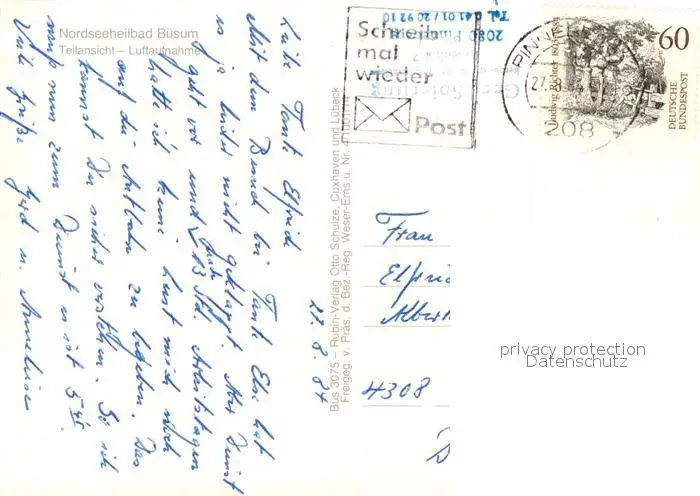 Nordseeheilbad Büsum
Teilansicht – Luftaufnahme
Liebe Tante Elfriede
Mit dem Besuch bei Tante Else hat
es ja leider nicht geklappt. Aber Dienst
geht vor und nach 13 Std. Arbeitstagen
hatte ich keine Lust mich noch
auf die Autobahn zu begeben. Das
kannst Du sicher verstehen. So ich
muß nun zum Dienst es ist 5 45
Viele Grüße Gerd u. Anneliese
27. 8. 84
Büs 3075 – Rubin-Verlag Otto Schulze, Cuxhaven und Lübeck
Freigeg. v. Präs. d. Bez.-Reg. Weser-Ems u. Nr.
Schreib
mal
wieder
Post
2080 Pin
Tel. 0 41 01 / 20 92 10
PIN
27. 8. 84
208
Ludwig Richter
60
DEUTSCHE
BUNDESPOST
Frau
Elfri
Albert
4308
privacy protection
Datenschutz